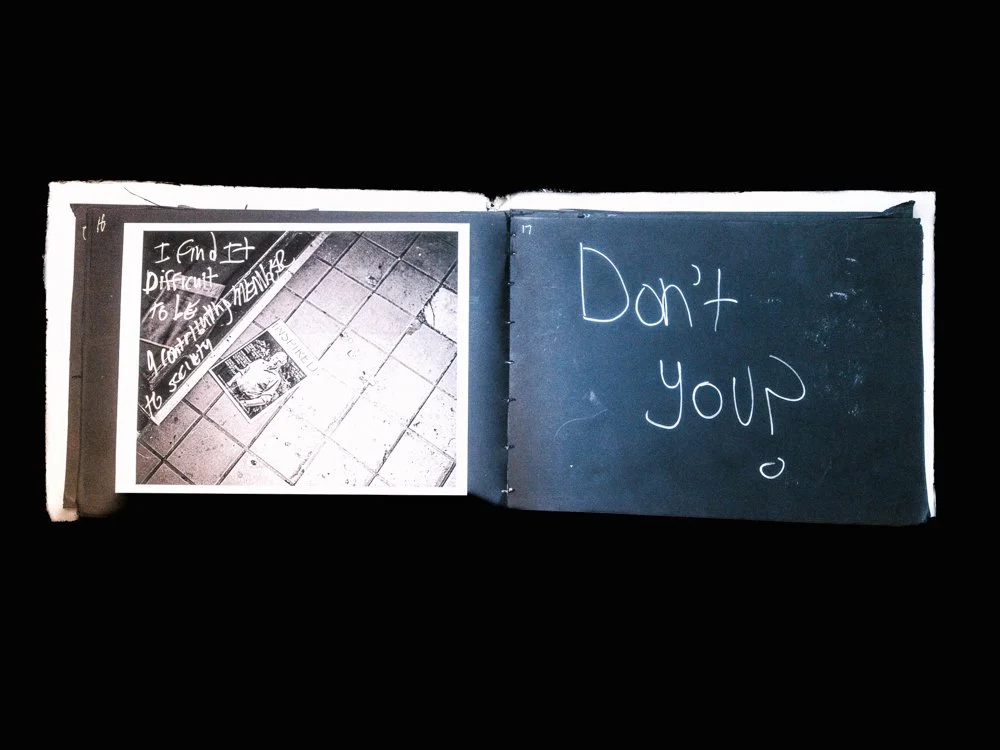 16
I find It
Difficult
To be
a contributing MEMBER
to society
INSPIRED
17
Don't
you?